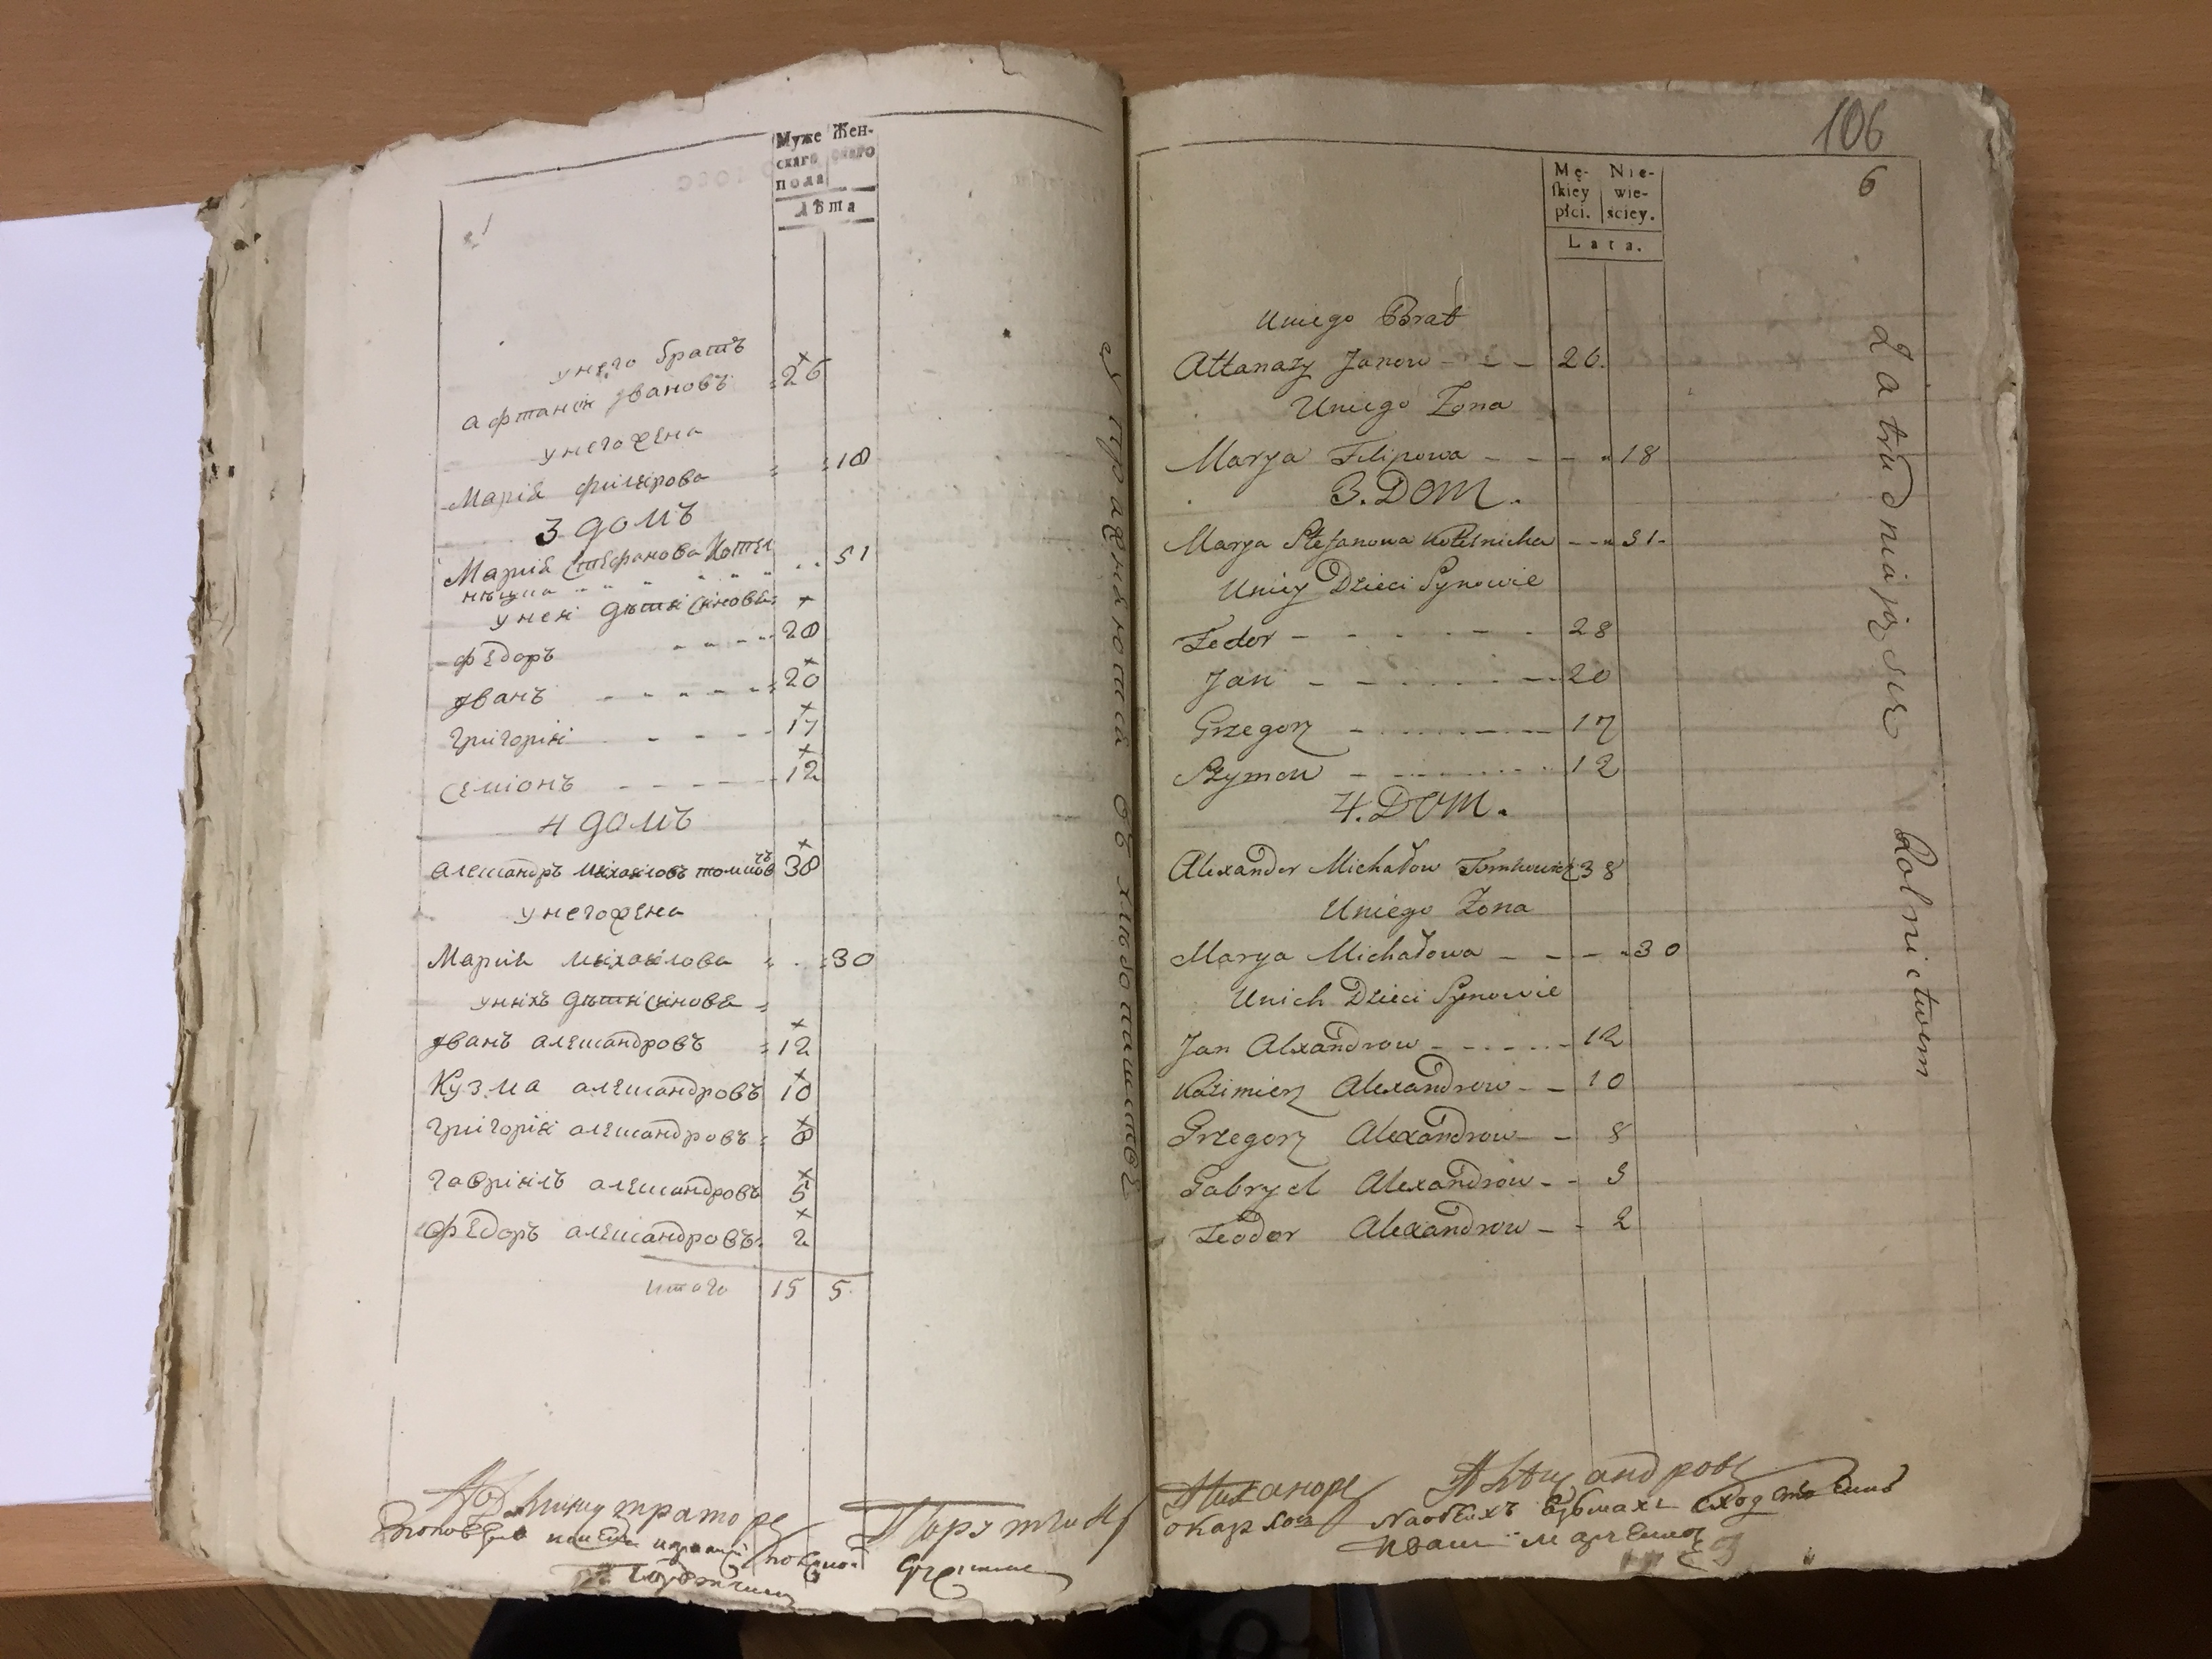 Муже Жен-
скаго скаго
пола
Лѣта
у него братъ
афтанѣи Ивановъ 26
у него жена
Марія филипова 18
3 домъ
Марія Стефанова Котел 51
ницка
у неи дѣти синовѧ
федоръ 28
Иванъ 20
григоріи 17
семіонъ 12
4 домъ
алеѯандръ михаиловъ 38
у него жена
Марія михаилова 30
у нихъ дѣти синовѧ
Иванъ алеѯандровъ 12
Кузма алеѯандровъ 10
григоріи алеѯандровъ 8
гавріилъ алеѯандровъ 5
федоръ алеѯандровъ 2
итого 15 5
упражняются въ хлѣбопашествѣ
106
6
Mę- Nie-
ſkiey wie-
płci. ściey.
Lata.
Uniego Brat
Attanazy Janow 26.
Uniego Zona
Marya Filipowa 18
3. DOM.
Marya Stefanowa Kotelnicka 51
Uniey Dzieci Synowie
Fedor 28
Jan 20
Grzegorz 17
Szymon 12
4. DOM.
Alexander Michałow Tomkowicz 38
Uniego Zona
Marya Michałowa 30
Unich Dzieci Synowie
Jan Alexandrow 12
Kazimierz Alexandrow 10
Grzegorz Alexandrow 8
Gabryel Alexandrow 5
Teodor Alexandrow 2
Zatrudniają się Rolnictwem
Администраторъ